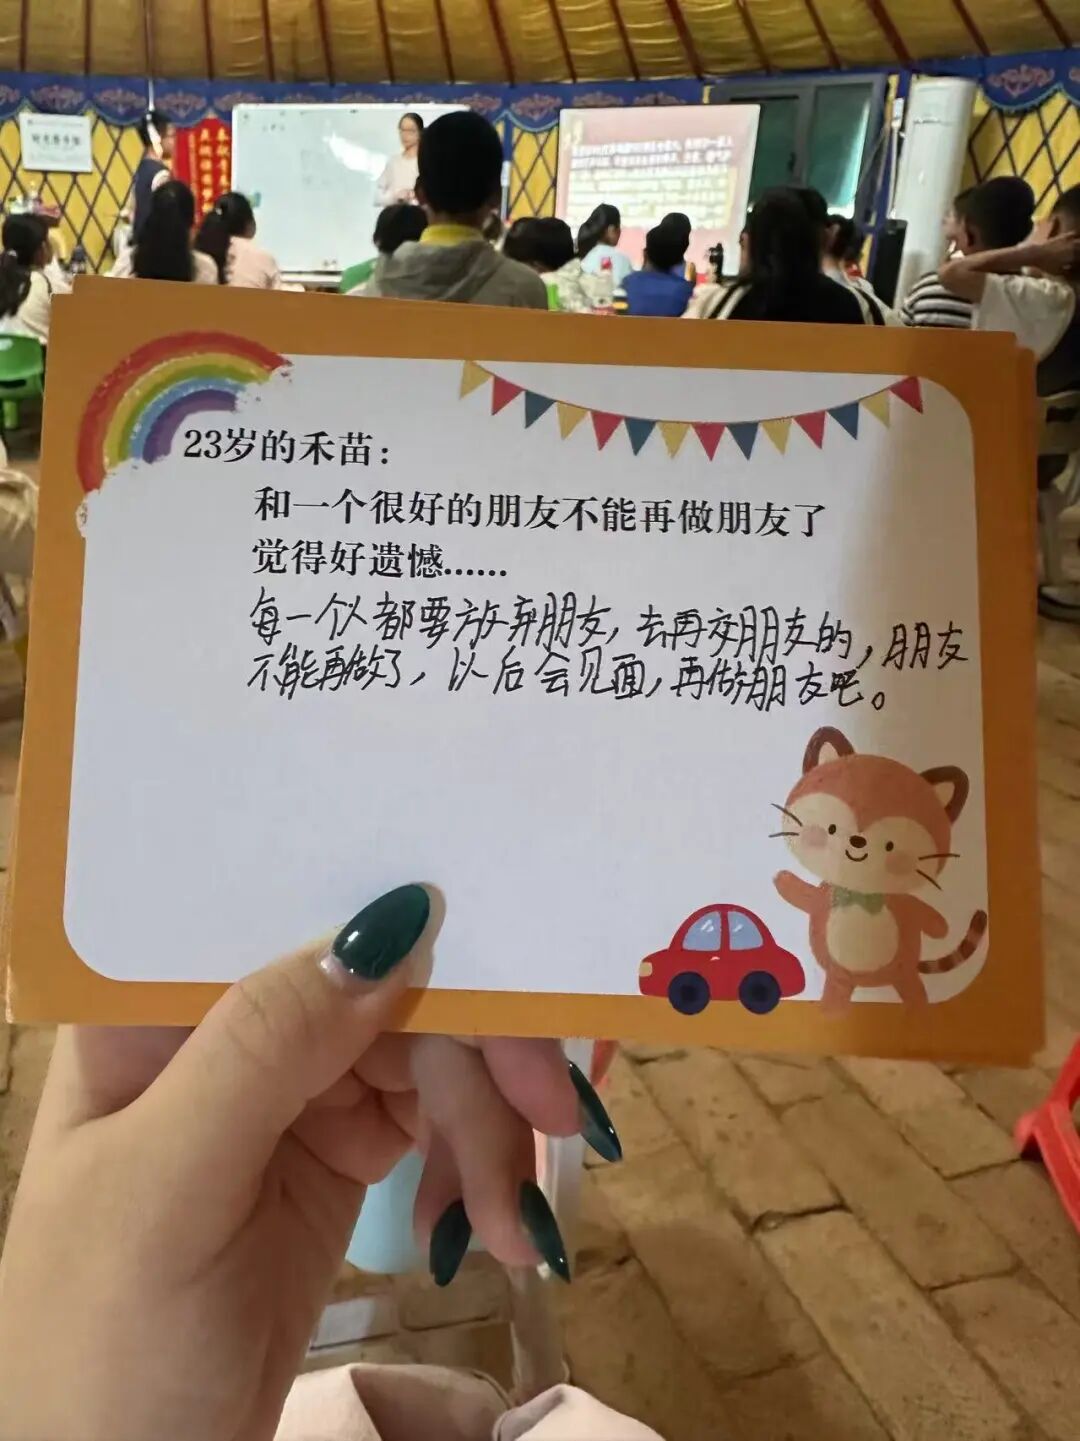 23岁的禾苗：
和一个很好的朋友不能再做朋友了
觉得好遗憾……
每一个人都要放弃朋友，去再交朋友的，朋友
不能再做了，以后会见面，再做朋友吧。